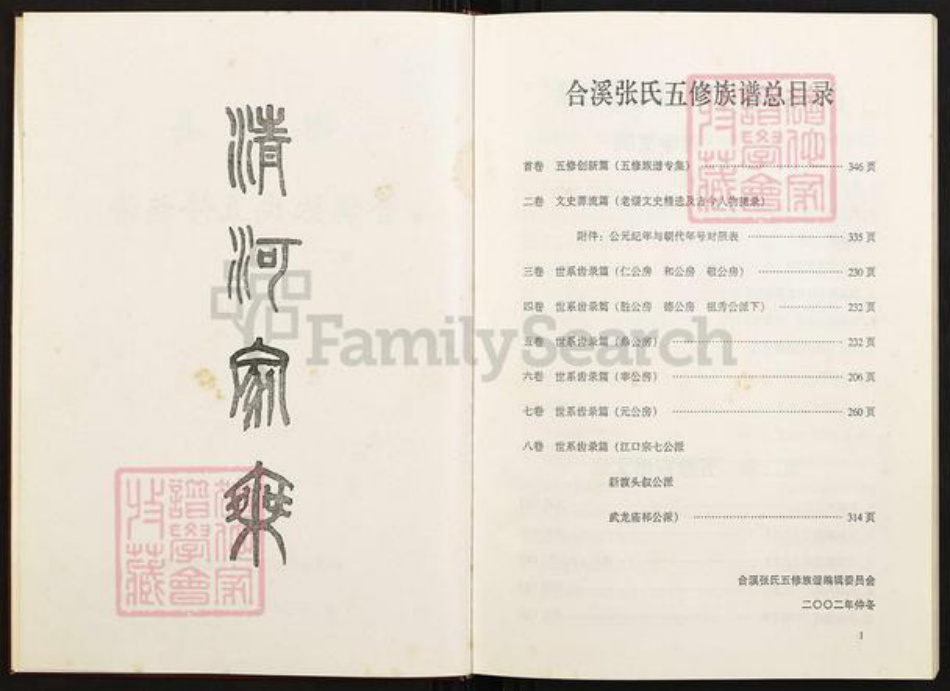 清河家乘
合溪张氏五修族谱总目录
首卷 五修创新篇（五修族谱专集） 346页
二卷 文史源流篇（老谱文史精选及古今人物录）
附件：公元纪年与朝代年号对照表 335页
三卷 世系齿录篇（仁公房 和公房 敬公房） 230页
四卷 世系齿录篇（公房 德公房 祖秀公派下） 232页
五卷 世系齿录篇（公房） 232页
六卷 世系齿录篇（公房） 206页
七卷 世系齿录篇（元公房） 260页
八卷 世系齿录篇（江口宗七公派
新渡头叙公派
武龙庙祁公派） 314页
合溪张氏五修族谱编辑委员会
二〇〇二年仲冬
1
FamilySearch
譜學會
收藏